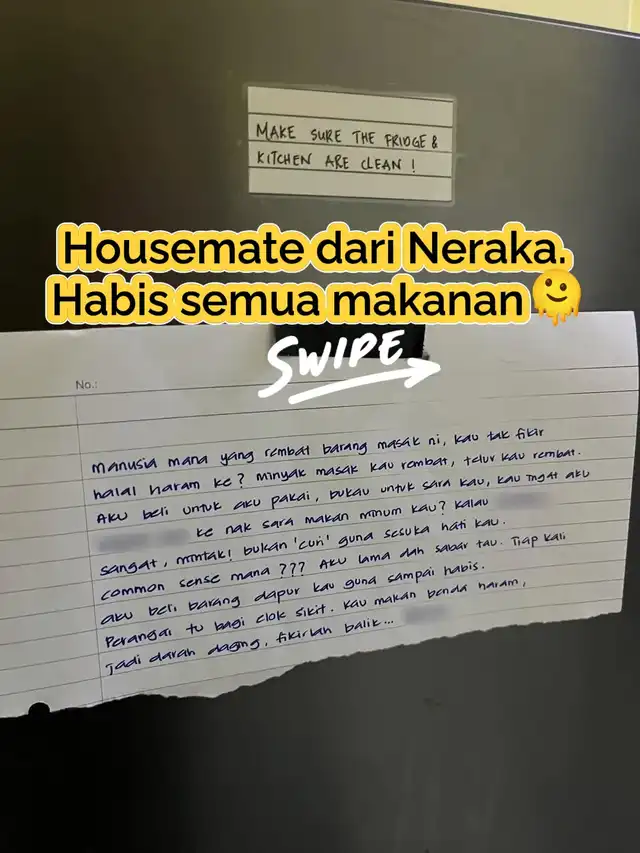 MAKE SURE THE FRIDGE &
KITCHEN ARE CLEAN !
Housemate dari Neraka.
Habis semua makanan
SWIPE
No.:
Manusia mana yang rembat barang masak ni, kau tak fikir
halal haram ke? Minyak masak kau rembat, telur kau rembat.
Aku beli untuk aku pakai, bukan untuk sara kau, kau ingat aku
ke nak sara makan minum kau? Kalau
sangat, mintak! bukan 'curi' guna sesuka hati kau.
common sense mana ??? Aku lama dah sabar tau. Tiap kali
aku beli barang dapur kau guna sampai habis.
Perangai tu bagi elok sikit. Kau makan benda haram,
jadi darah daging, fikirlah balik...